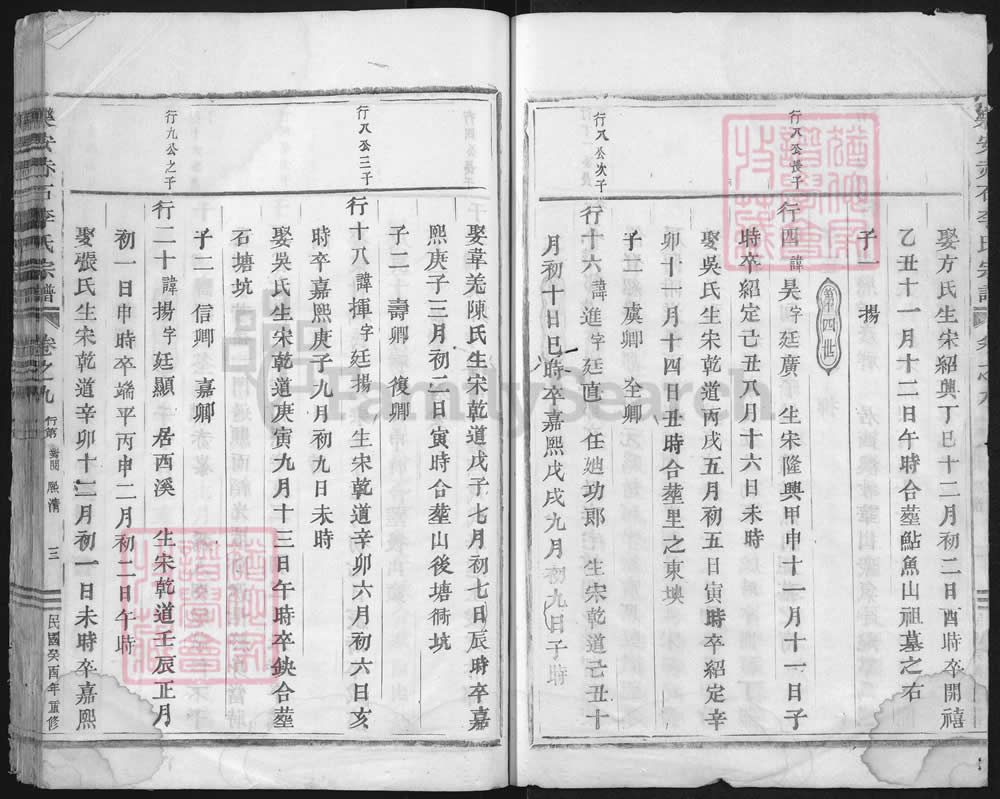 娶方氏生宋紹興丁巳十二月初二日酉時卒開禧
乙丑十一月十二日午時合塟鮎魚山祖墓之右
子一 揚
第十四世
行八公長子
行四諱昊字廷廣 生宋隆興甲申十一月十一日子
時卒紹定己丑八月十六日未時
娶吳氏生宋乾道丙戌五月初五日寅時卒紹定辛
卯十一月十四日丑時合塟里之東墺
子二 虞卿 全卿
行八公次子
行十六諱進字廷直 任廸功郎生宋乾道己丑十
月初十日巳時卒嘉熙戊戌九月初九日子時
娶葦羌陳氏生宋乾道戊子七月初七日辰時卒嘉
熙庚子三月初二日寅時合塟山後塘衕坑
子二 壽卿 復卿
行八公三子
行十八諱揮字廷揚 生宋乾道辛卯六月初六日亥
時卒嘉熙庚子九月初九日未時
娶吳氏生宋乾道庚寅九月十三日午時卒缺合塟
石塘坑
子二 信卿 嘉卿
行九公之子
行二十諱揚字廷顯 居西溪 生宋乾道壬辰正月
初一日申時卒端平丙申二月初二日午時
娶張氏生宋乾道辛卯十二月初一日未時卒嘉熙
樂安赤石李氏宗譜 卷之九 行第 三 民國癸酉年重修
FamilySearch